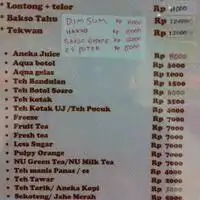 • Lontong + telor Rp
• Bakso Tahu Rp
• Tekwan Rp
DIM SUM Rp
BAKSO Rp
ES PUTER Rp
• Aneka Juice Rp 8000
• Aqua botol Rp 3000
• Aqua gelas Rp 1000
• Teh Bandulan Rp 3500
• Teh Botol Sosro Rp
• Teh kotak Rp 3500
• Teh Kotak UJ /Teh Pucuk Rp 4000
• Freeze Rp 7000
• Fruit Tea Rp 7000
• Fresh tea Rp 7000
• Less Sugar Rp 7000
• Pulpy Orange Rp 7000
• NU Green Tea/NU Milk Tea Rp 7000
• Teh manis Panas / es Rp 4000
• Teh Tawar Rp 2000
• Teh Tarik/ Aneka Kopi Rp
• Sekoteng/ Jahe Merah Rp